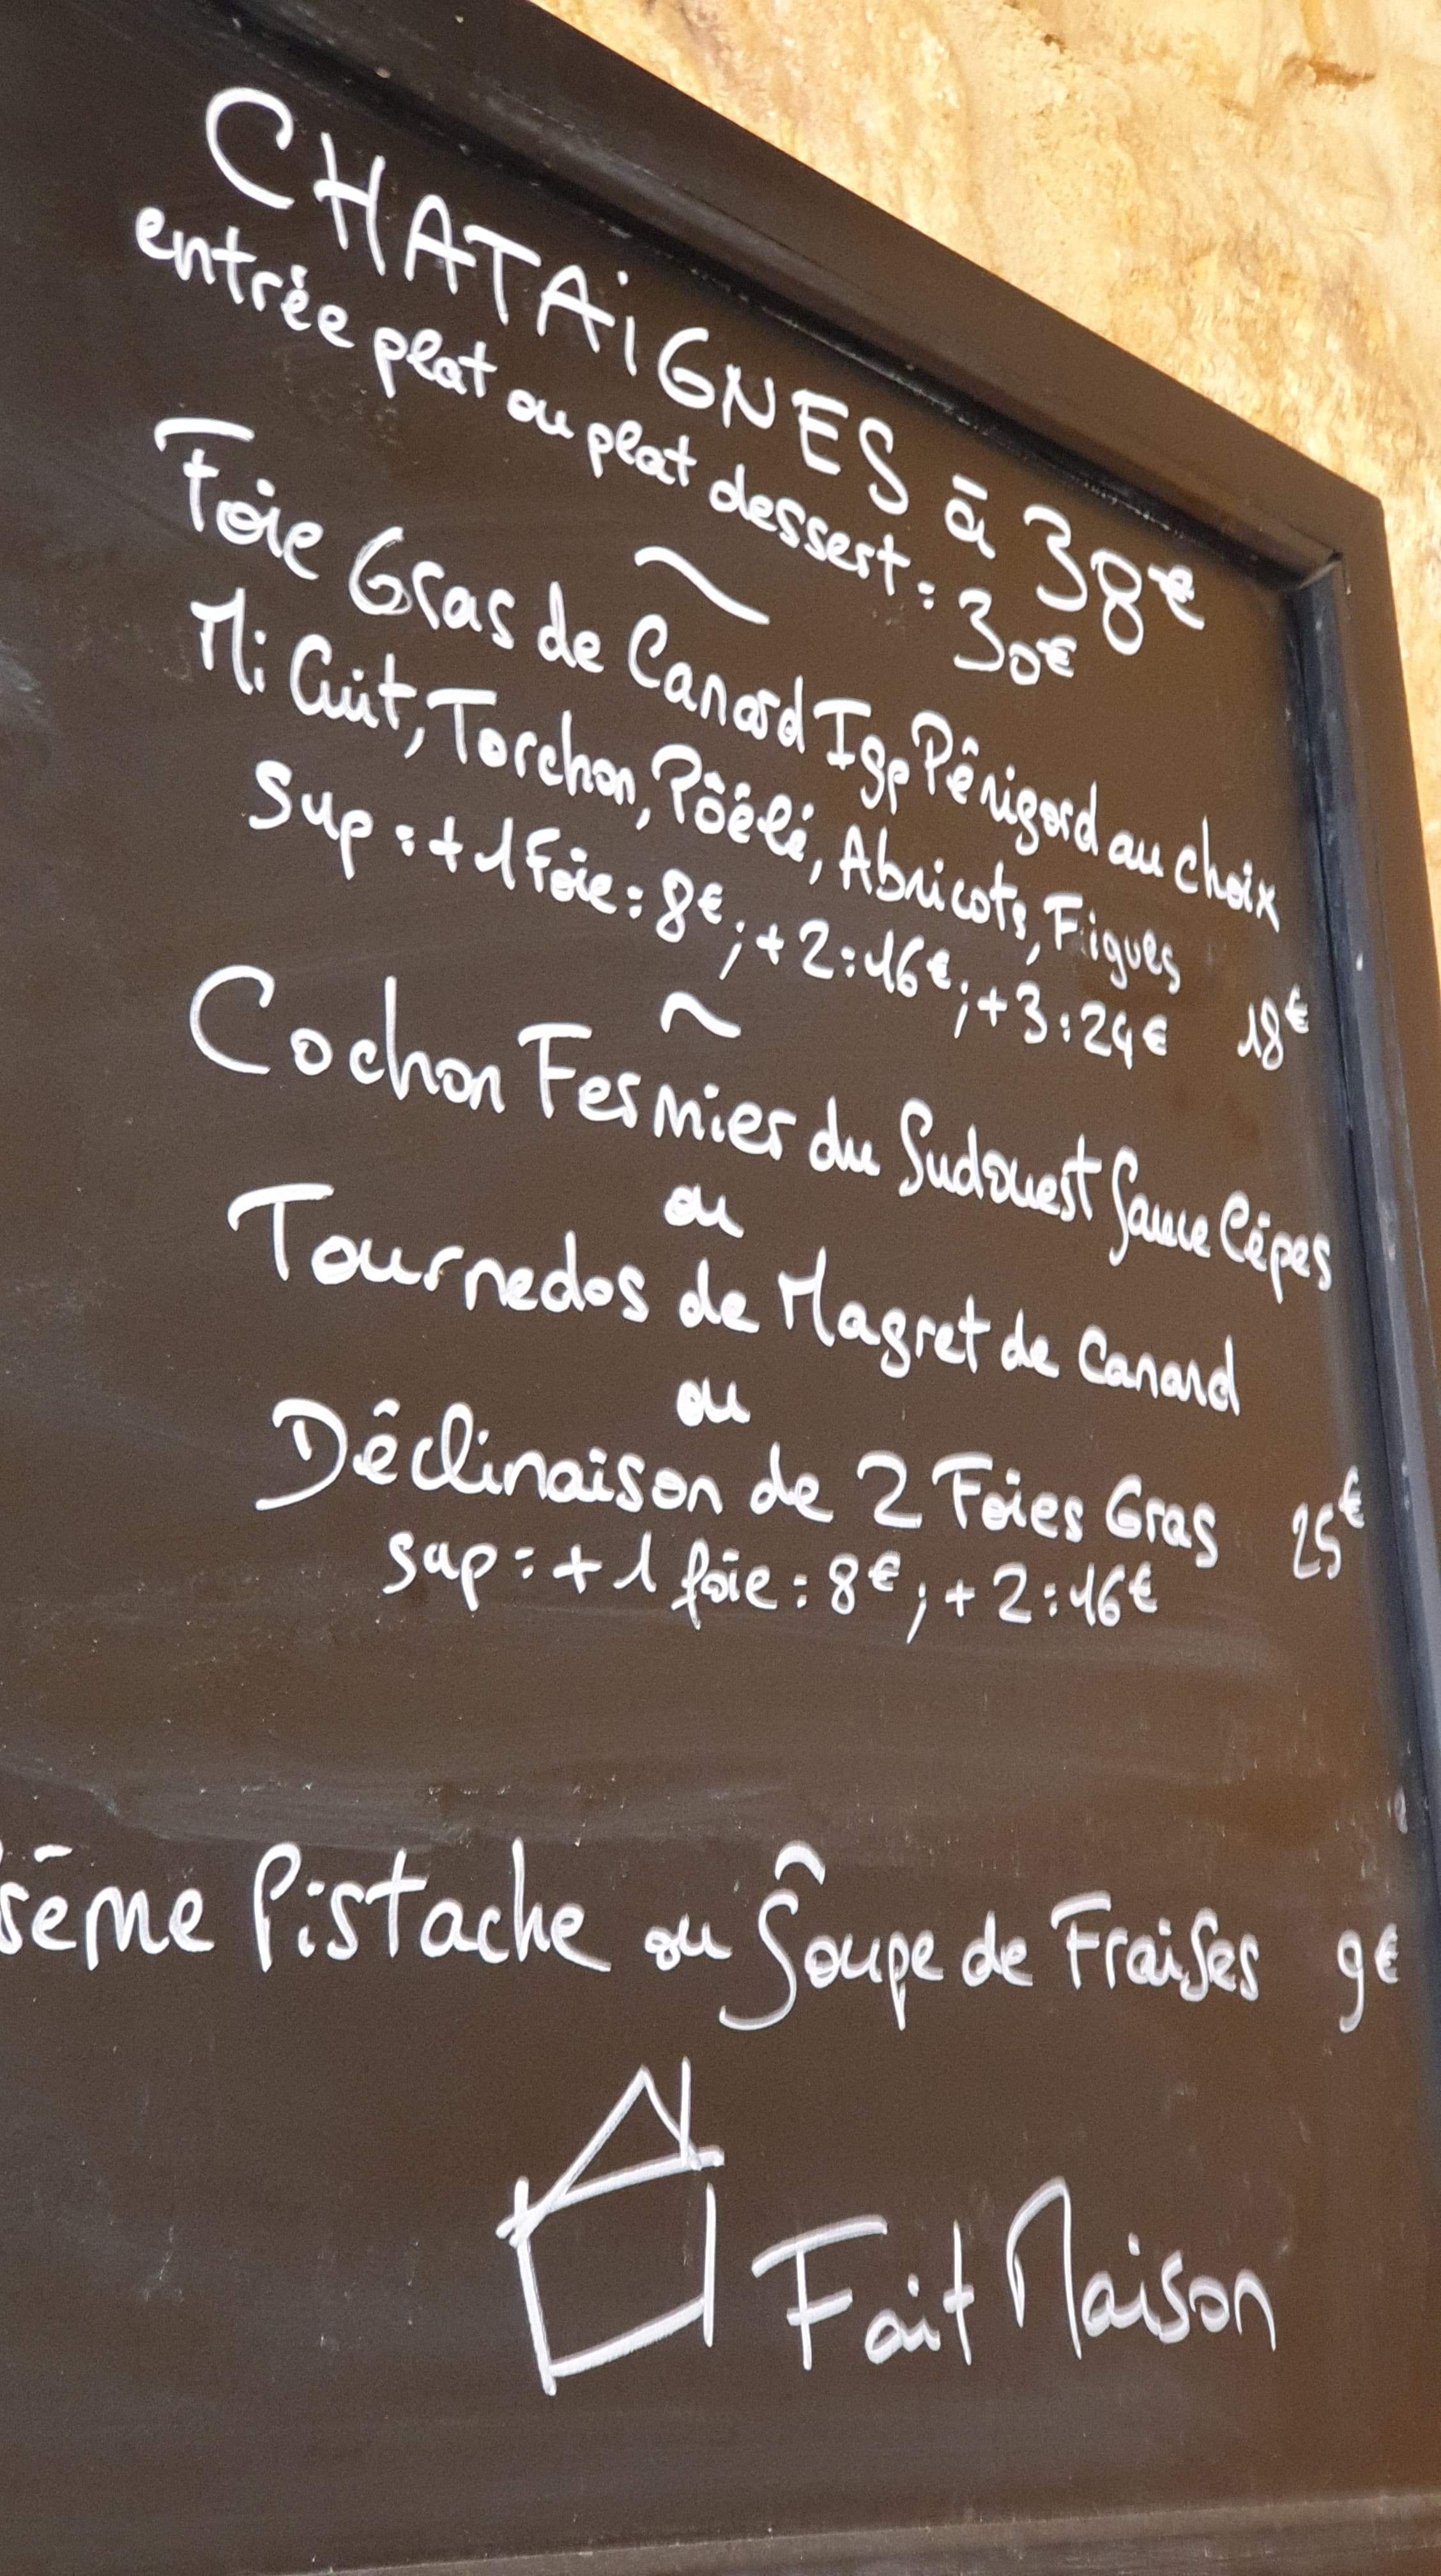 CHATAiGNES à 38€
entrée plat ou plat dessert : 30€
~
Foie Gras de Canard Igp Périgord au choix
Mi Cuit, Torchon, Pôêlé, Abricots, Figues
Sup : + 1 Foie : 8€ ; + 2 : 16€ ; + 3 : 24€ 18€
~
Cochon Fermier du Sudouest Sauce Cèpes
ou
Tournedos de Magret de Canard
ou
Déclinaison de 2 Foies Gras 25€
sup : + 1 foie : 8€ ; + 2 : 16€
Pistache ou Soupe de Fraises 9€
Fait Maison